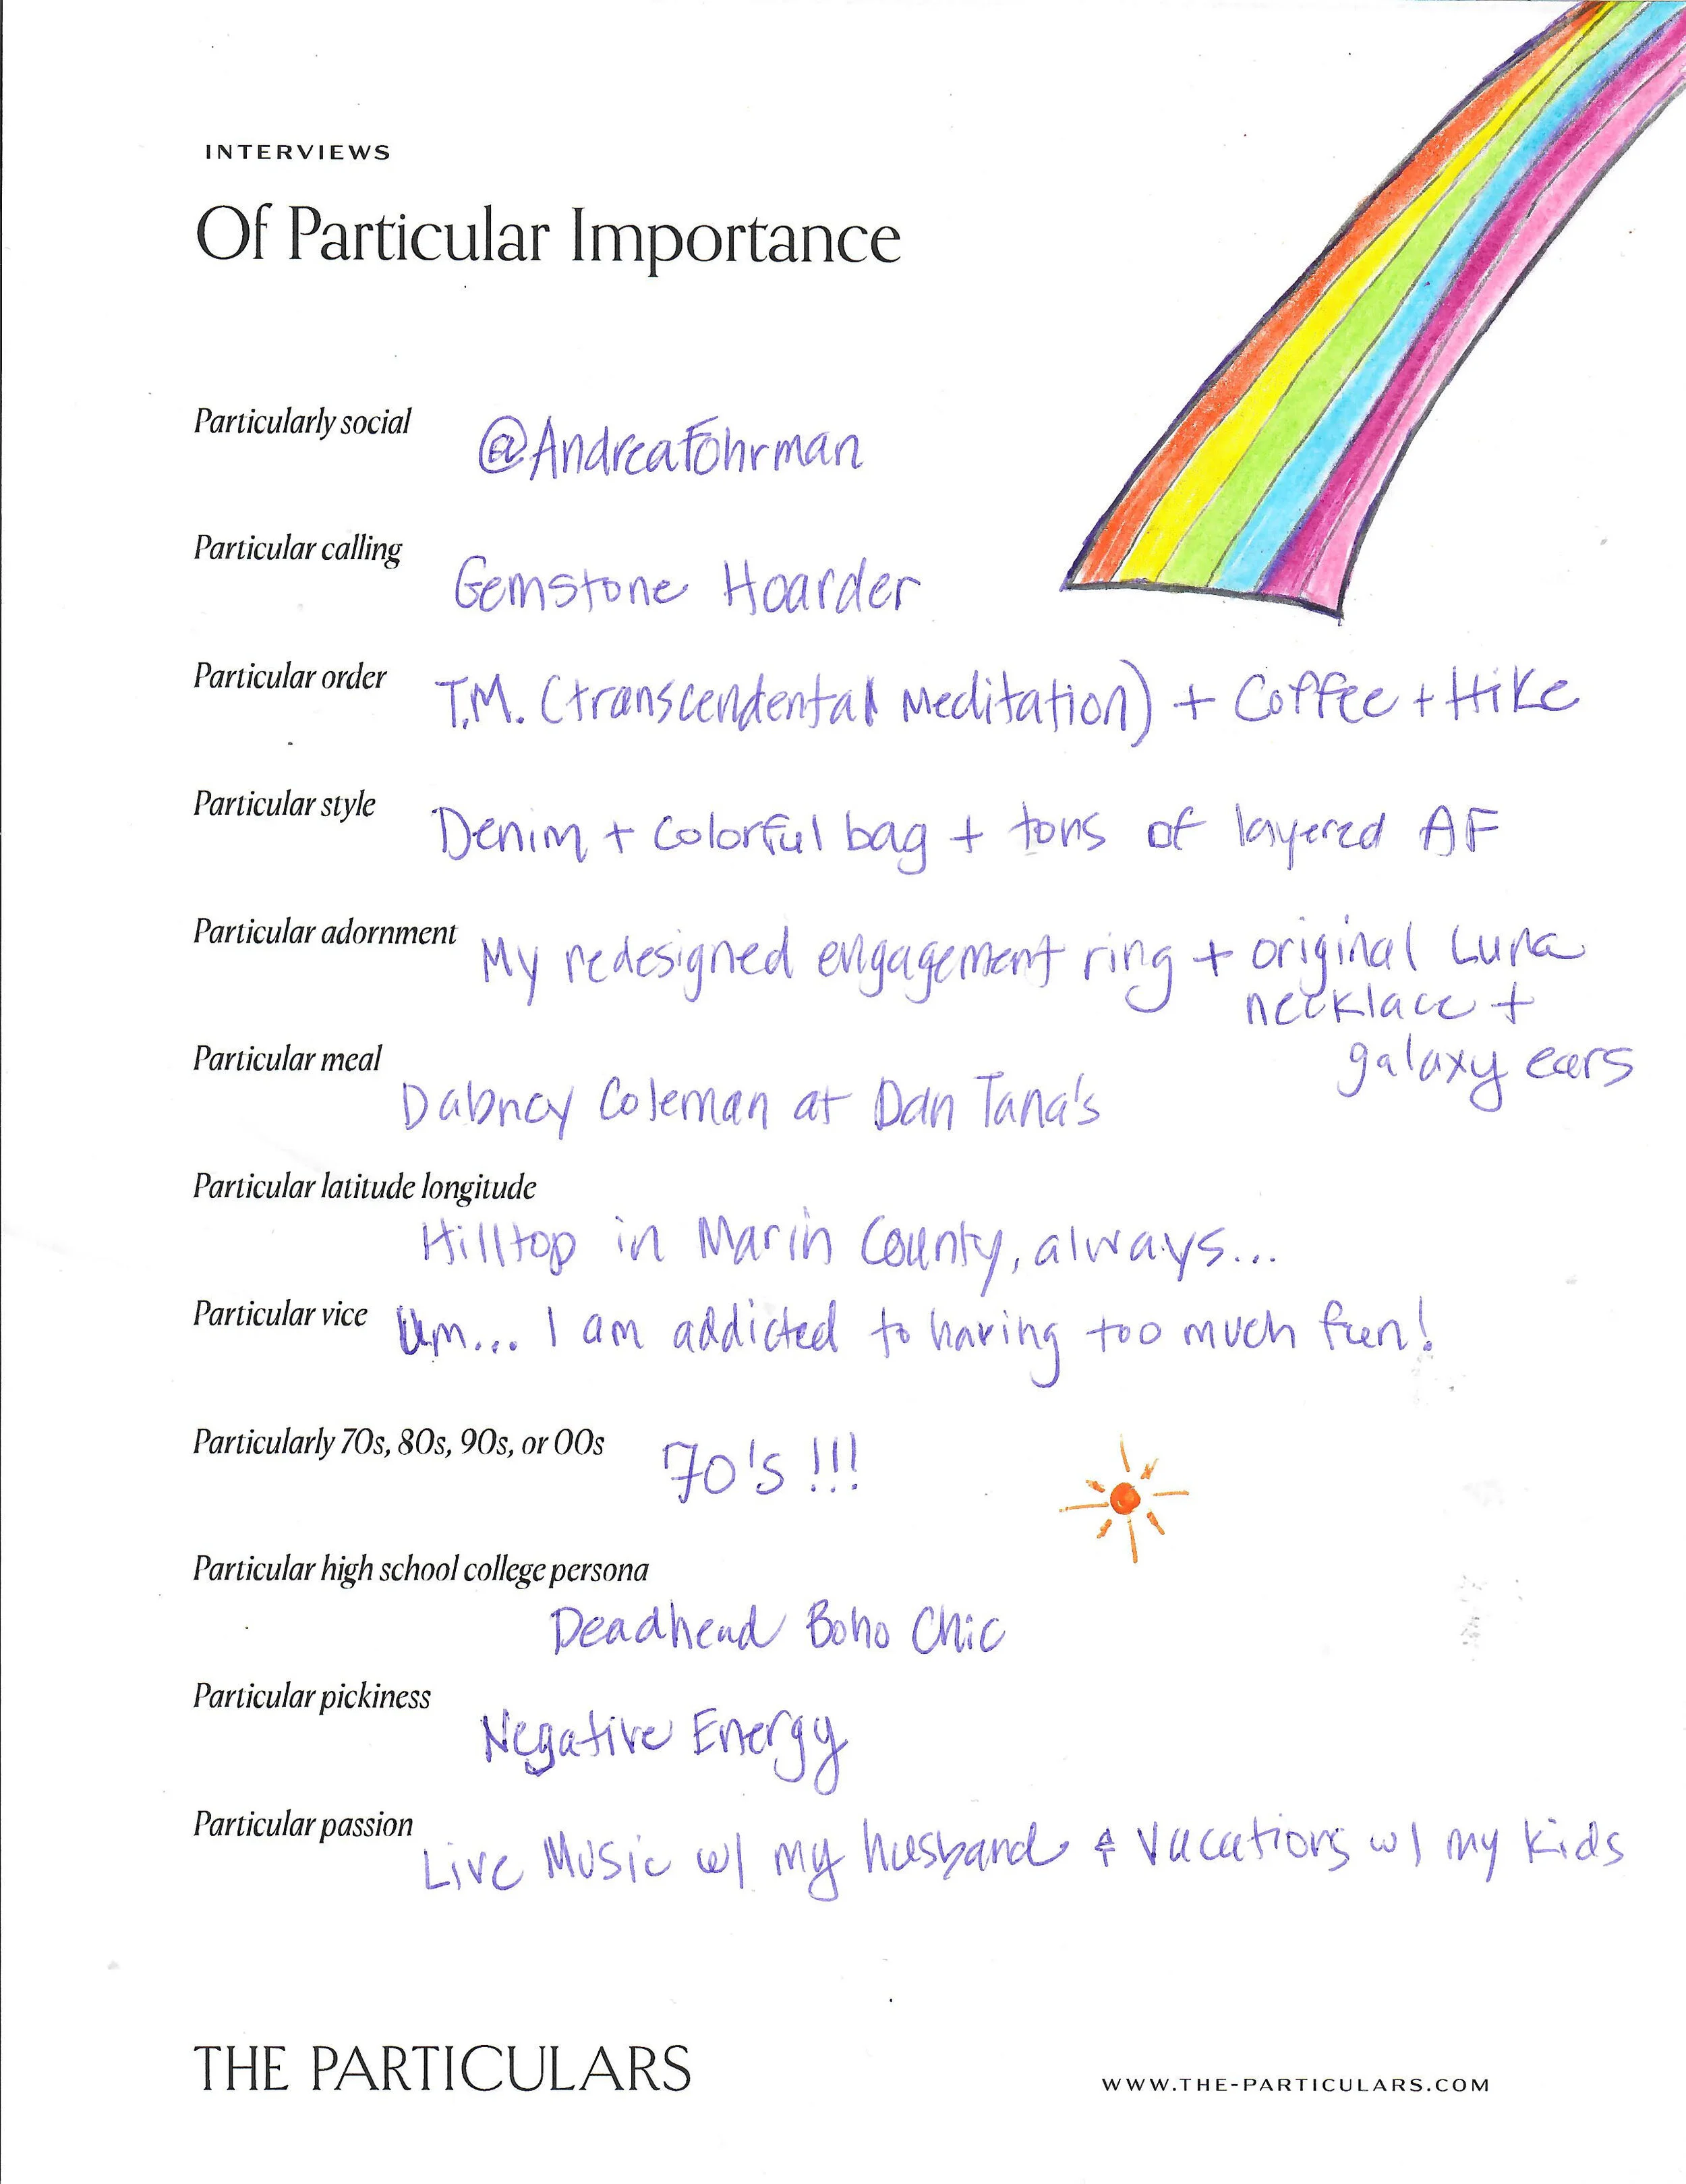 INTERVIEWS
Of Particular Importance
Particularly social @AndreaFohrman
Particular calling Gemstone Hoarder
Particular order T.M. (transcendental Meditation) + Coffee + Hike
Particular style Denim + colorful bag + tons of layered AF
Particular adornment My redesigned engagement ring + original Luna
necklace +
galaxy ears
Particular meal Dabney Coleman at Dan Tana's
Particular latitude longitude
Hilltop in Marin County, always...
Particular vice Um... I am addicted to having too much fun!
Particularly 70s, 80s, 90s, or 00s 70's !!!
Particular high school college persona
Deadhead Boho Chic
Particular pickiness Negative Energy
Particular passion Live Music w/ my husband & Vacations w/ my kids
THE PARTICULARS
WWW.THE-PARTICULARS.COM